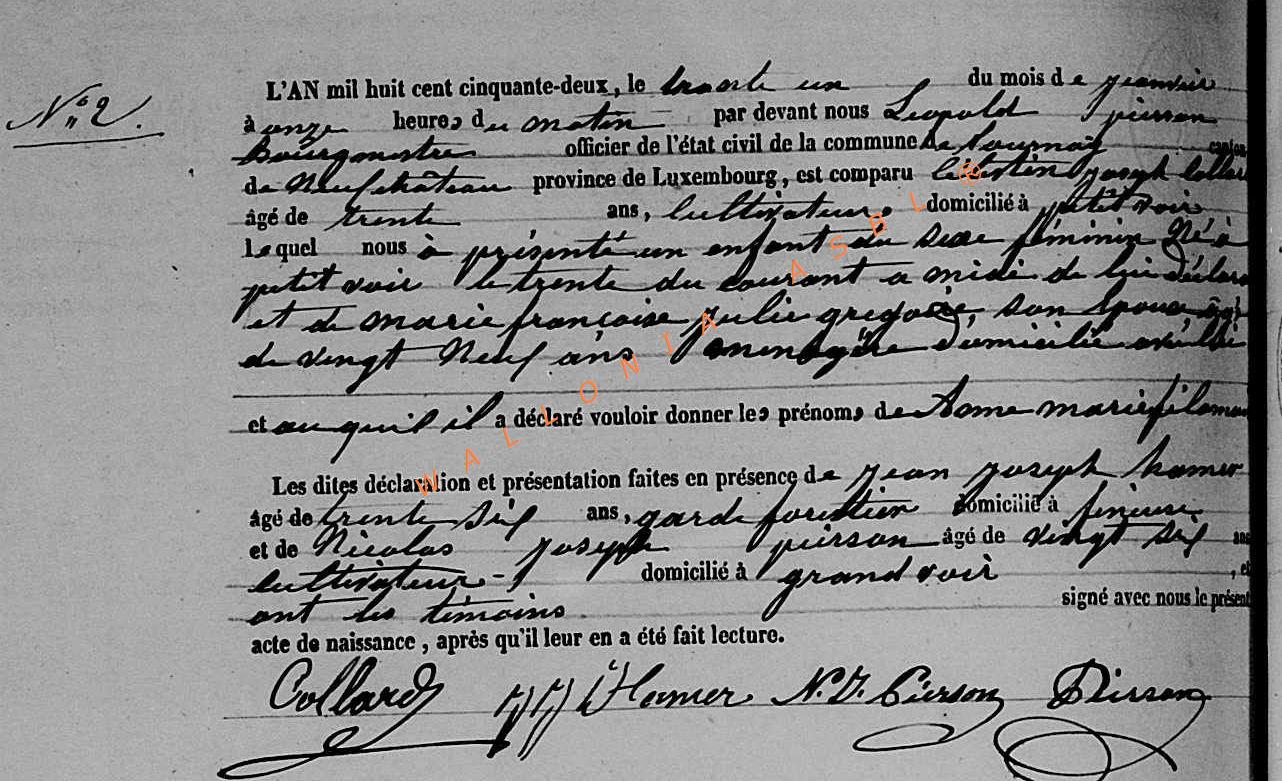 N° 2.
L'AN mil huit cent cinquante-deux, le trente un du mois de janvier
à onze heures du matin par devant nous Leopold pierson
Bourgmestre officier de l'état civil de la commune de tournay canton
de Neufchâteau province de Luxembourg, est comparu Celestin joseph Collard
âgé de trente ans, Cultivateur, domicilié à petit voir
lequel nous à présenté un enfant du sexe féminin Né à
petit voir le trente du courant a midi de lui déclara
et de marie françoise julie gregoire son Epouse âgé
de vingt Neuf ans menagère domicilié
et au quil il a déclaré vouloir donner les prénoms de marie filomen
Les dites déclaration et présentation faites en présence de jean joseph hamer
âgé de trente six ans, garde forestier domicilié à fineuse
et de Nicolas joseph pierson âgé de vingt six ans
cultivateur - domicilié à grand voir , et
ont les témoins signé avec nous le présent
acte de naissance, après qu'il leur en a été fait lecture.
Collard JJ Hamer N.J. Pierson Pierson
WALLONIA ASBL ®